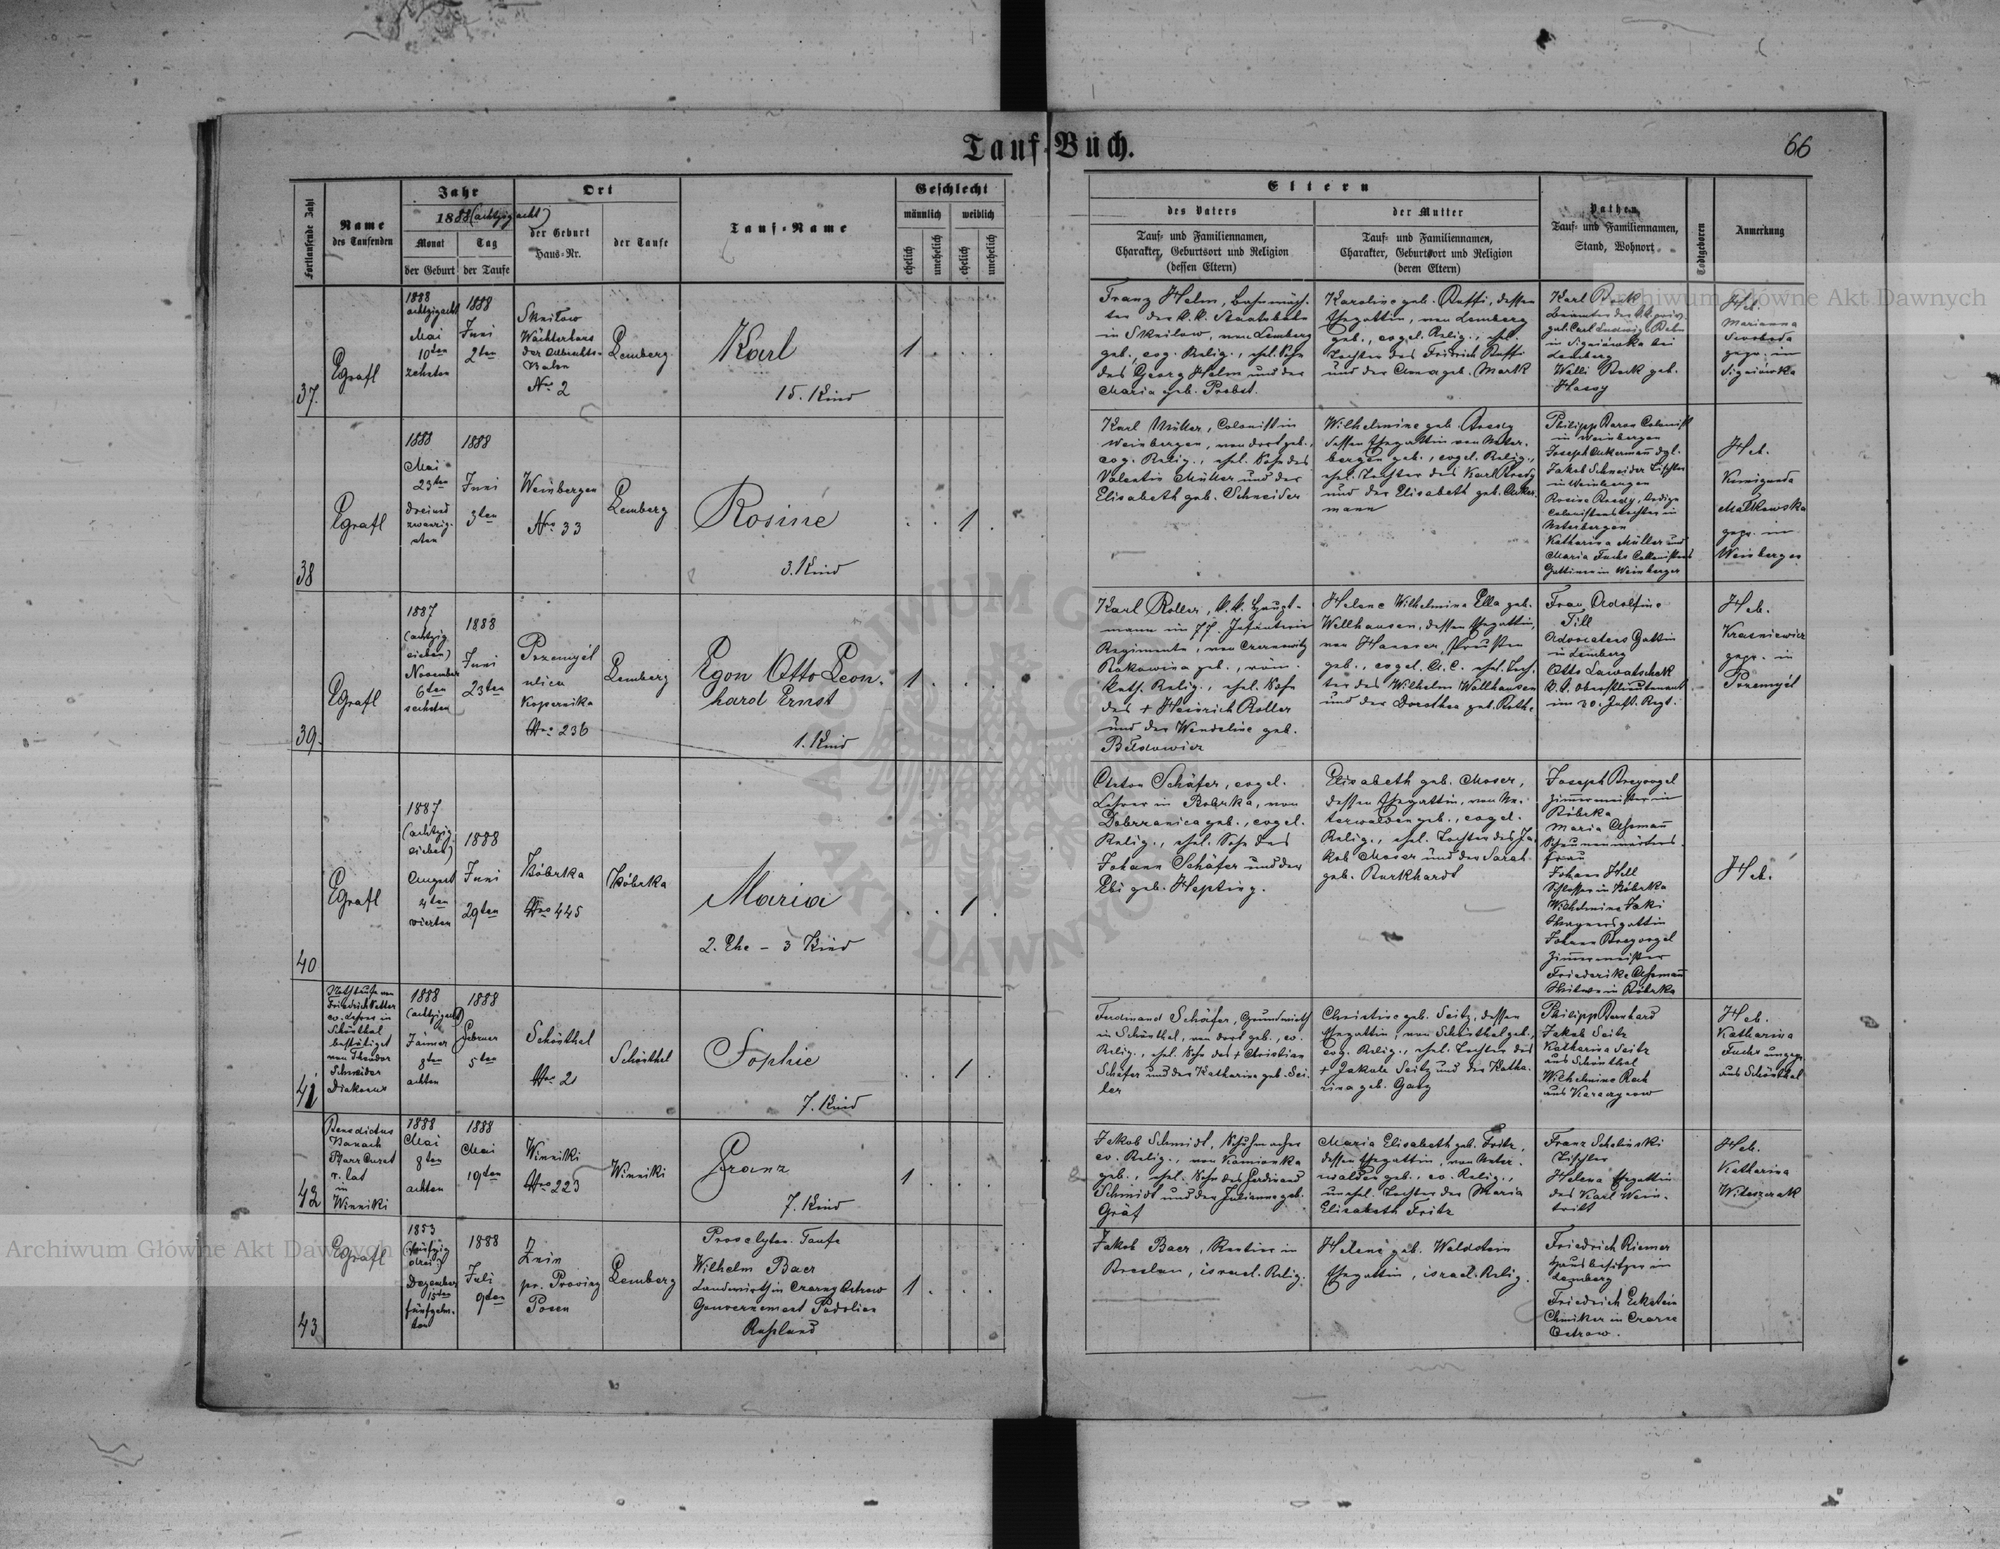 Tauf-Buch.
66
Fortlaufende Zahl
Name
des Taufenden
Jahr
1888 (achtzig acht)
Monat
der Geburt
Tag
der Taufe
Ort
der Geburt
Haus-Nr.
der Taufe
Tauf-Name
Geschlecht
männlich
weiblich
ehelich
unehelich
ehelich
unehelich
Eltern
des Vaters
Tauf- und Familiennamen,
Charakter, Geburtsort und Religion
(dessen Eltern)
der Mutter
Tauf- und Familiennamen,
Charakter, Geburtsort und Religion
(deren Eltern)
Pathen,
Tauf- und Familiennamen,
Stand, Wohnort
Todtgeboren
Anmerkung
37.
1888
achtzigacht
Mai
10ten
zehnten
1888
Juni
2ten
Skniłow
Wächterhaus
der Albrechts-
Bahn
Nro 2
Lemberg
Karl
15. Kind
1
Franz Helm, Bahnwäch-
ter der k.k. Staatsbahn
in Skniłow, von Lemberg
geb., evg. Relig., ehel. Sohn
des Georg Helm und der
Maria geb. Probst.
Karoline geb. Raffi, dessen
Ehegattin, von Lemberg
geb., evgel. Relig., ehel.
Tochter des Fridrich Raffi
und der Anna geb. Mark
Karl Bock
gal. Carl Ludwig Bahn
in Signiówka bei
Lemberg
Walli Bock geb.
Heb.
Marianna
Swoboda
gepr. in
Signiówka
38
1888
Mai
23ten
dreiund
zwanzig-
sten
1888
Juni
3ten
Weinbergen
Nro 33
Lemberg
Rosine
3. Kind
1
Karl Müller, Colonist in
Weinbergen, von dort geb.,
evg. Relig., ehel. Sohn des
Valentin Müller und der
Elisabeth geb. Schneider
Wilhelmine geb.
dessen Ehegattin von Unter-
bergen geb., evgel. Relig.,
ehel. Tochter des Karl
und der Elisabeth geb. Acker-
mann
Philipp Baron Colonist
in Weinbergen
Joseph Ackermann dgl.
Jakob Schneider Tischler
in Weinbergen
Rosine
Colonistenstochter in
Unterbergen
Katharina Müller und
Maria Fuchs Colonistens
Gattinen in Weinbergen
Heb.
Kunigunda
Małkowska
gepr. in
Weinbergen
39.
1887
(achtzig
sieben)
November
6ten
sechsten
1888
Juni
23ten
Przemyśl
ulica
Kopernika
Nro 236
Lemberg
Egon Otto Leon-
hard Ernst
1. Kind
1
Karl Roller, k.k. Haupt-
mann im 77. Infanterie
Regimente, von Czernowitz
Bukowina geb., röm.
kath. Relig., ehel. Sohn
des + Heinrich Roller
und der Wendeline geb.
Helene Wilhelmine Ella geb.
Wellhausen, dessen Ehegattin,
von Hannover, Preußen
geb., evgel. A.C. ehel. Toch-
ter des Wilhelm Wellhausen
und der Dorothea geb. Roth.
Frau Adolfine
Till
Advocatens Gattin
in Lemberg
Otto Lawatschek
k.k. Oberstlieutenant
im 30. Inft. Regt.
Heb.
Krasniewicz
gepr. in
Przemyśl
40
1887
(achtzig
sieben)
August
4ten
vierten
1888
Juni
29ten
Bóbrka
Nro 445
Bóbrka
Maria
2. Ehe - 3 Kind
1
Anton Schäfer, evgel.
Lehrer in Bobrka, von
Dobrzanica geb., evgel.
Relig., ehel. Sohn des
Johann Schäfer und der
Ebi geb. Hepting.
Elisabeth geb. Moser,
dessen Ehegattin, von Un-
terwalden geb., evgel.
Relig., ehel. Tochter des Ja-
kob Moser und der Sarah
geb. Burkhardt
Joseph Bregovgel
Zimmermeister in
Bóbrka
Maria Aßmann
frau
Johann Hell
Schlosser in Bóbrka
Wilhelmine Jaki
Wagnersgattin
Johann Bregovgel
Zimmermeister
Friederike Aßmann
Witwe in Bóbrka
Heb.
41
Nothtaufe von
Friedrich Vetter
ev. Lehrer in
Schönthal,
bestätiget
von Theodor
Schneider
Diakonus
1888
(achtzigacht)
Jänner
8ten
achten
1888
Februar
5ten
Schönthal
Nro 21
Schönthal
Sophie
7. Kind
1
Ferdinand Schäfer, Grundwirth
in Schönthal, von dort geb., ev.
Relig., ehel. Sohn des + Christian
Schäfer und der Katharina geb. Sei-
ler
Christine geb. Seitz, dessen
Ehegattin, von Schönthal geb.,
evg. Relig., ehel. Tochter des
+ Jakob Seitz und der Katha-
rina geb. Gang
Philipp Bernhard
Jakob Seitz
Katharina Seitz
aus Schönthal
Wilhelmine Rech
Heb.
Katharina
Fuchs ungepr.
aus Schönthal
42
Benedictus
Banach
Pfarr Curat
r. lat
in
Winniki
1888
Mai
8ten
achten
1888
Mai
19ten
Winniki
Nro 223
Winniki
Franz
7. Kind
1
Jakob Schmidt, Schuhmacher
ev. Relig., von Kamionka
geb., ehel. Sohn des Ferdinand
Schmidt und der Julianna geb.
Gräf
Maria Elisabeth geb. Fritz,
dessen Ehegattin, von Unter-
walden geb., ev. Relig.,
unehel. Tochter der Maria
Elisabeth Fritz
Franz Schelinski
Tischler
Helena Ehegattin
des Karl Wein-
tritt
Heb.
Katharina
Witoszczak
43
1853
(fünfzig
drei)
Dezember
15ten
fünfzehn-
ten
1888
Juli
9ten
Znin
pr. Provinz
Posen
Lemberg
Proselyten-Taufe
Wilhelm Baer
Landwirth in Czarny Ostrow
Gouvernement Podolien
Rußland
1
Jakob Baer, Rentier in
Breslau, israel. Relig.
Helene geb. Waldstein
Ehegattin, israel. Relig.
Friedrich Riemer
Hausbesitzer in
Lemberg
Friedrich Eckstein
Chmiker in Czarne
Ostrow.
Archiwum Główne Akt Dawnych
Archiwum Główne Akt Dawnych
ARCHIWUM GŁÓWNE AKT DAWNYCH